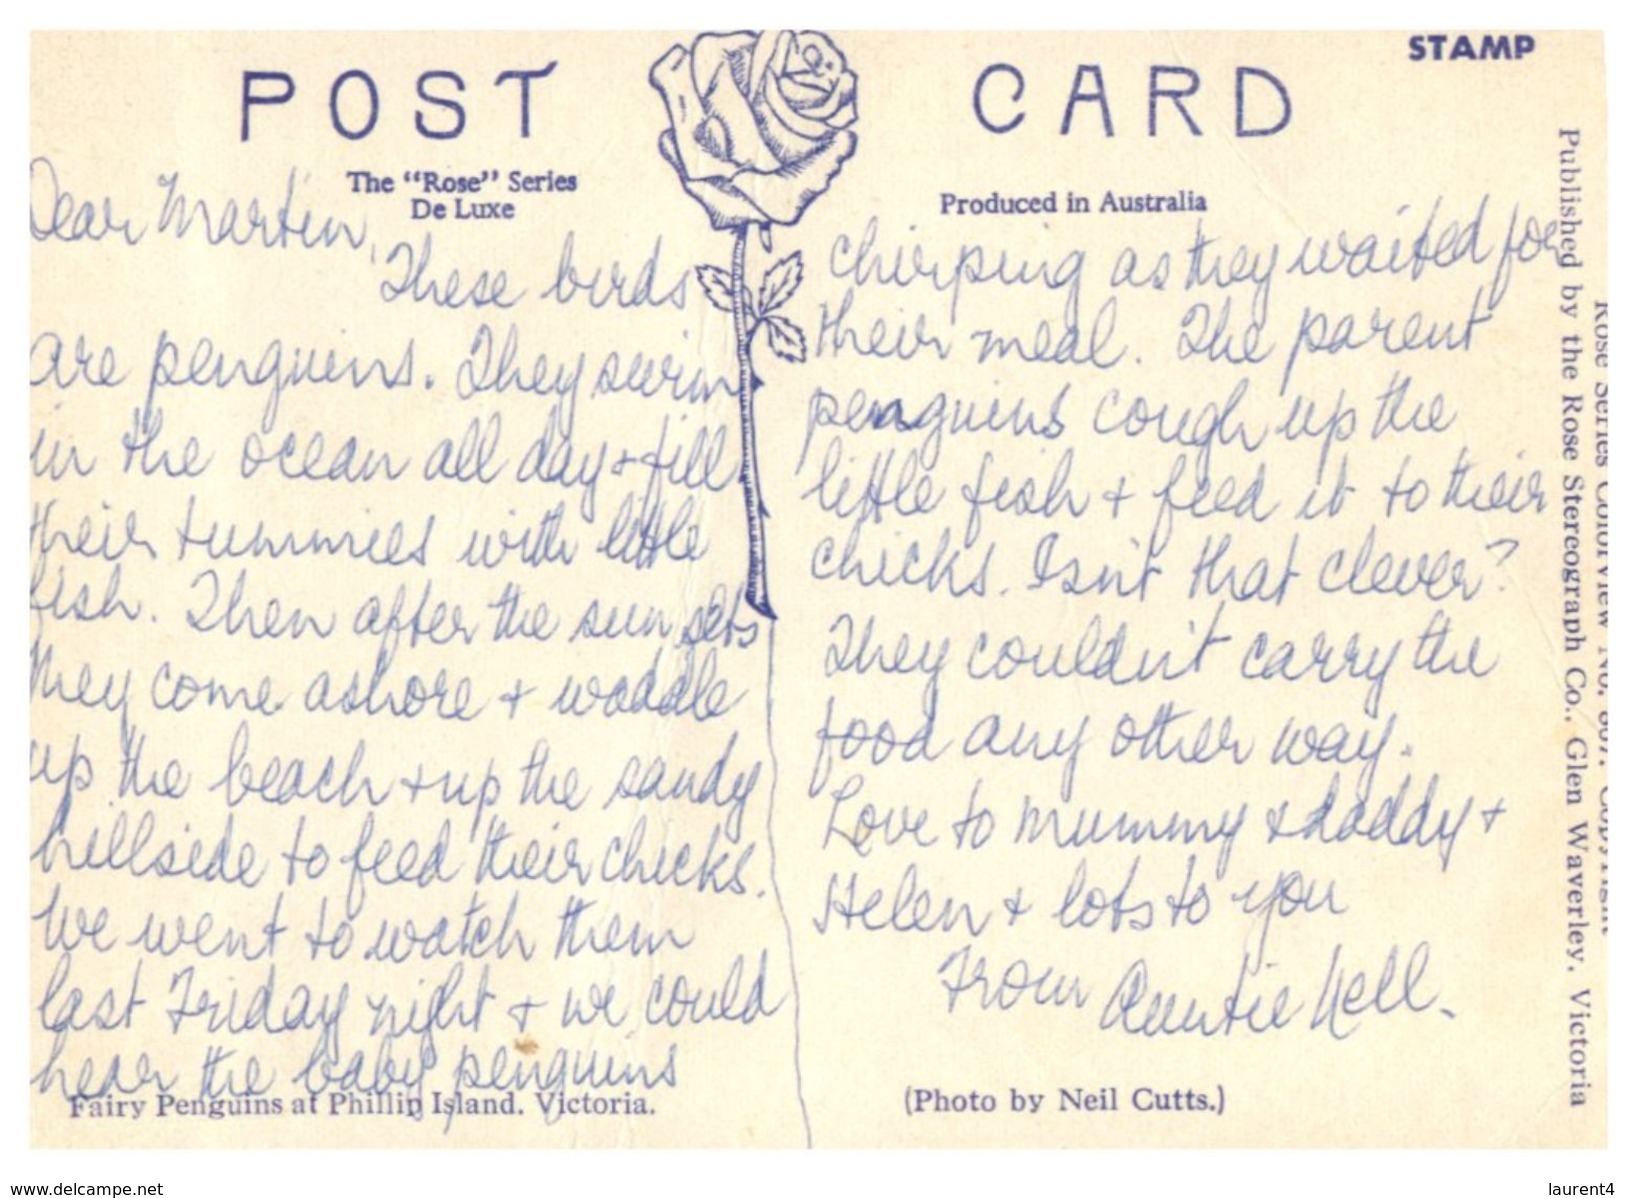 POST CARD
STAMP
The "Rose" Series
De Luxe
Produced in Australia
Dear Martin,
These birds
are penguins. They swim
in the ocean all day + fill
their tummies with little
fish. Then after the sun sets
they come ashore + waddle
up the beach + up the sandy
hillside to feed their chicks.
We went to watch them
last Friday night + we could
hear the baby penguins
Fairy Penguins at Phillip Island. Victoria.
chirping as they waited for
their meal. The parent
penguins cough up the
little fish + feed it to their
chicks. Isn't that clever?
They couldn't carry the
food any other way.
Love to mummy & daddy +
Helen + lots to you
From Auntie Nell.
(Photo by Neil Cutts.)
Rose Series Colorview No. Copyright
Published by the Rose Stereograph Co., Glen Waverley, Victoria
www.delcampe.net
laurent4